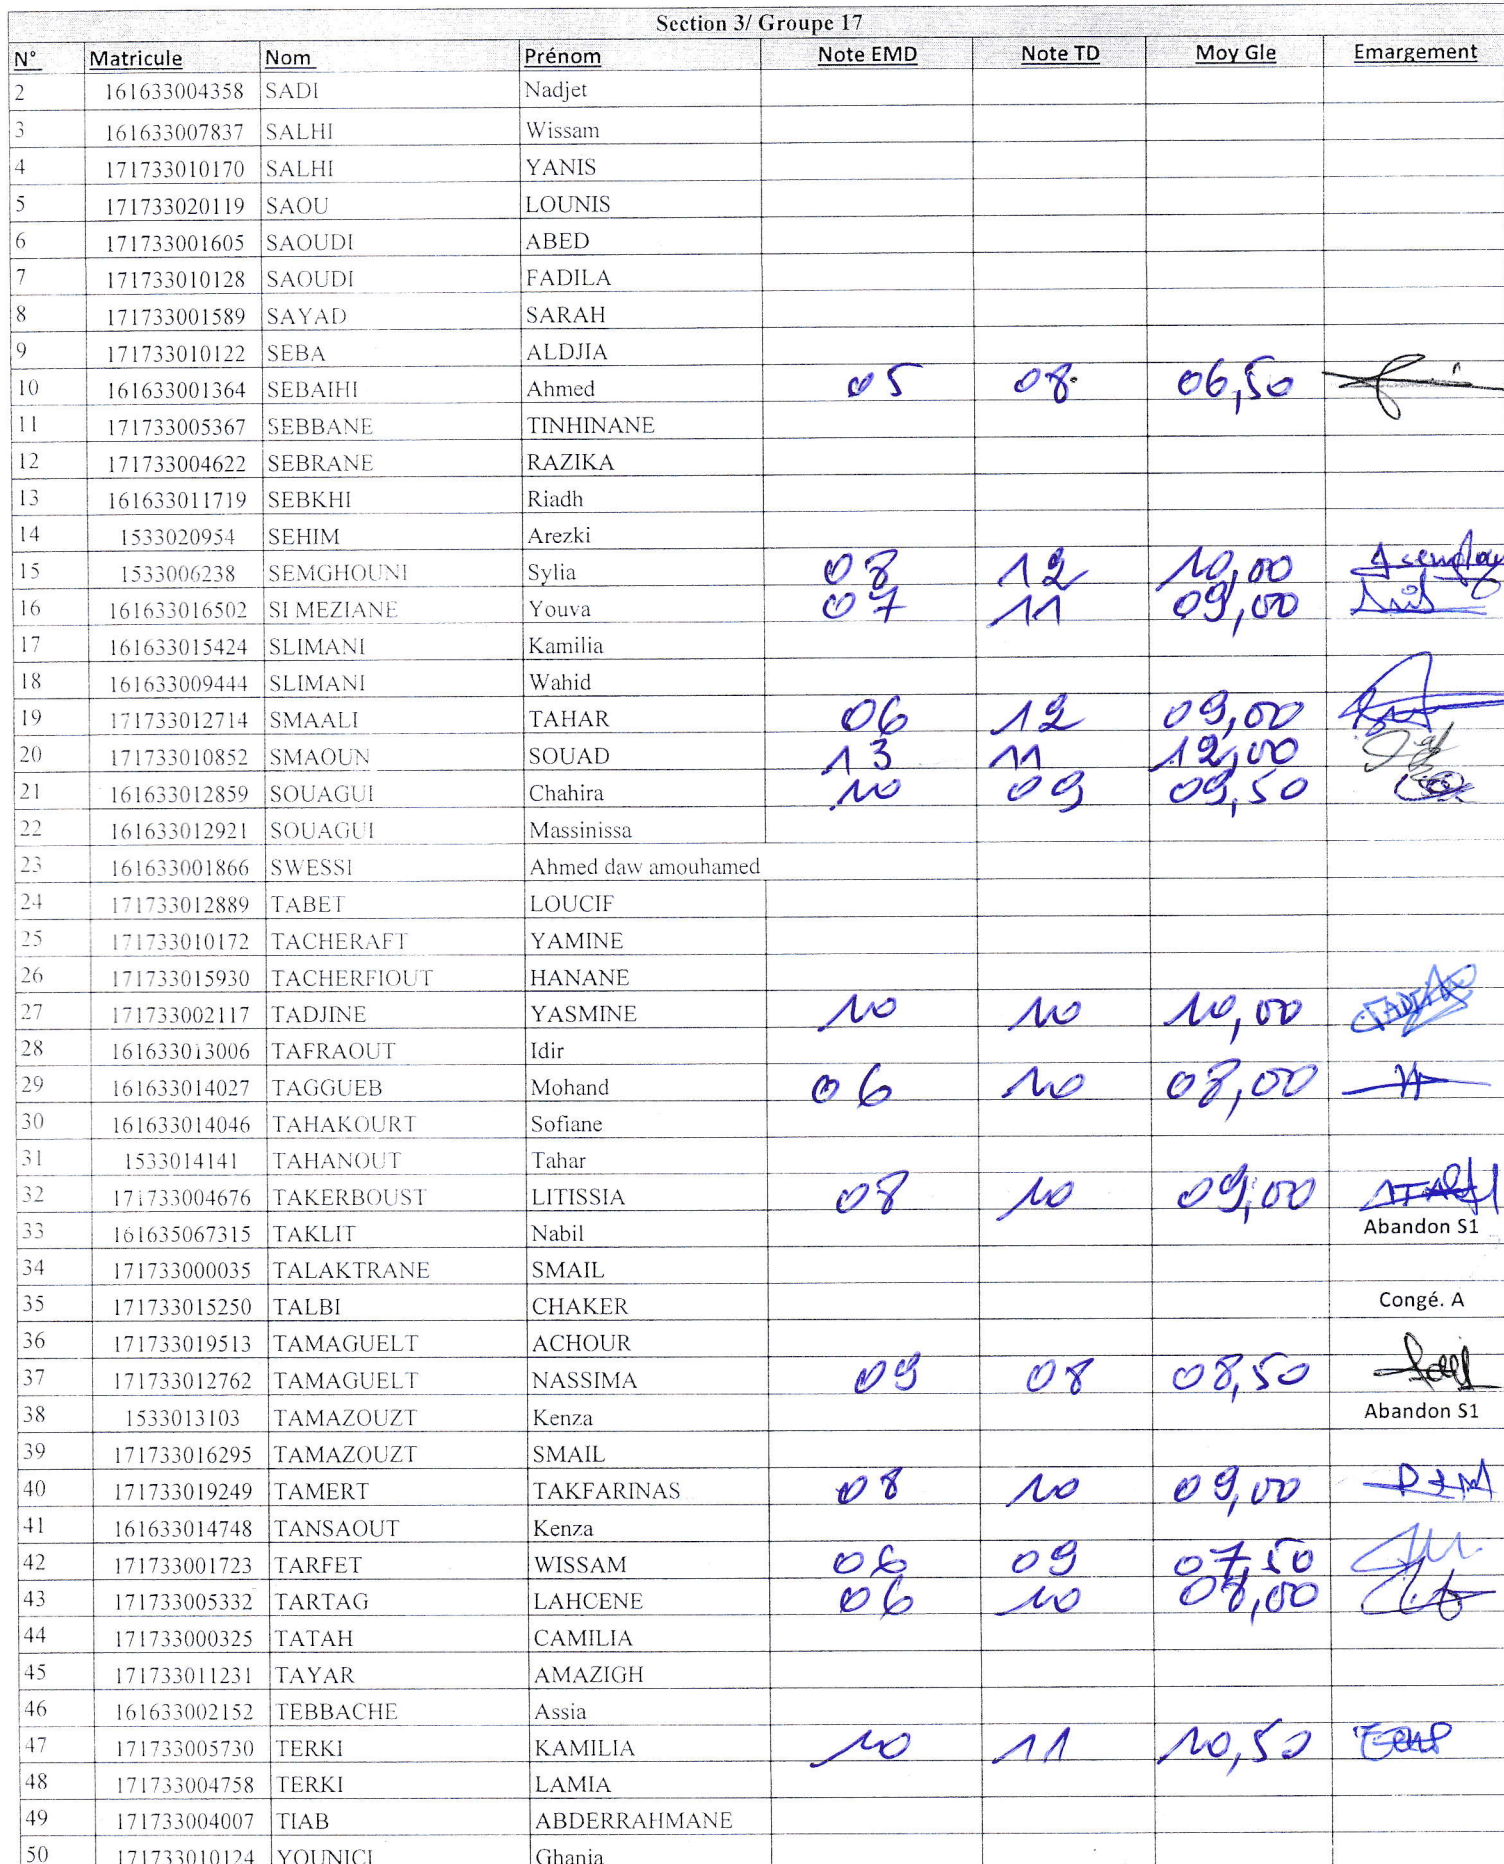 Section 3/ Groupe 17
N° Matricule Nom Prénom Note EMD Note TD Moy Gle Emargement
2 161633004358 SADI Nadjet
3 161633007837 SALHI Wissam
4 171733010170 SALHI YANIS
5 171733020119 SAOU LOUNIS
6 171733001605 SAOUDI ABED
7 171733010128 SAOUDI FADILA
8 171733001589 SAYAD SARAH
9 171733010122 SEBA ALDJIA
10 161633001364 SEBAIHI Ahmed 05 08 06,50
11 171733005367 SEBBANE TINHINANE
12 171733004622 SEBRANE RAZIKA
13 161633011719 SEBKHI Riadh
14 1533020954 SEHIM Arezki
15 1533006238 SEMGHOUNI Sylia 08 12 10,00
16 161633016502 SI MEZIANE Youva 07 11 09,00
17 161633015424 SLIMANI Kamilia
18 161633009444 SLIMANI Wahid
19 171733012714 SMAALI TAHAR 06 12 09,00
20 171733010852 SMAOUN SOUAD 13 11 12,00
21 161633012859 SOUAGUI Chahira 10 09 09,50
22 161633012921 SOUAGUI Massinissa
23 161633001866 SWESSI Ahmed daw amouhamed
24 171733012889 TABET LOUCIF
25 171733010172 TACHERAFT YAMINE
26 171733015930 TACHERFIOUT HANANE
27 171733002117 TADJINE YASMINE 10 10 10,00
28 161633013006 TAFRAOUT Idir
29 161633014027 TAGGUEB Mohand 06 10 08,00
30 161633014046 TAHAKOURT Sofiane
31 1533014141 TAHANOUT Tahar
32 171733004676 TAKERBOUST LITISSIA 08 10 09,00
33 161635067315 TAKLIT Nabil Abandon S1
34 171733000035 TALAKTRANE SMAIL
35 171733015250 TALBI CHAKER Congé. A
36 171733019513 TAMAGUELT ACHOUR
37 171733012762 TAMAGUELT NASSIMA 09 08 08,50
38 1533013103 TAMAZOUZT Kenza Abandon S1
39 171733016295 TAMAZOUZT SMAIL
40 171733019249 TAMERT TAKFARINAS 08 10 09,00
41 161633014748 TANSAOUT Kenza
42 171733001723 TARFET WISSAM 06 09 07,50
43 171733005332 TARTAG LAHCENE 06 10 08,00
44 171733000325 TATAH CAMILIA
45 171733011231 TAYAR AMAZIGH
46 161633002152 TEBBACHE Assia
47 171733005730 TERKI KAMILIA 10 11 10,50
48 171733004758 TERKI LAMIA
49 171733004007 TIAB ABDERRAHMANE
50 171733010124 YOUNICI Ghania